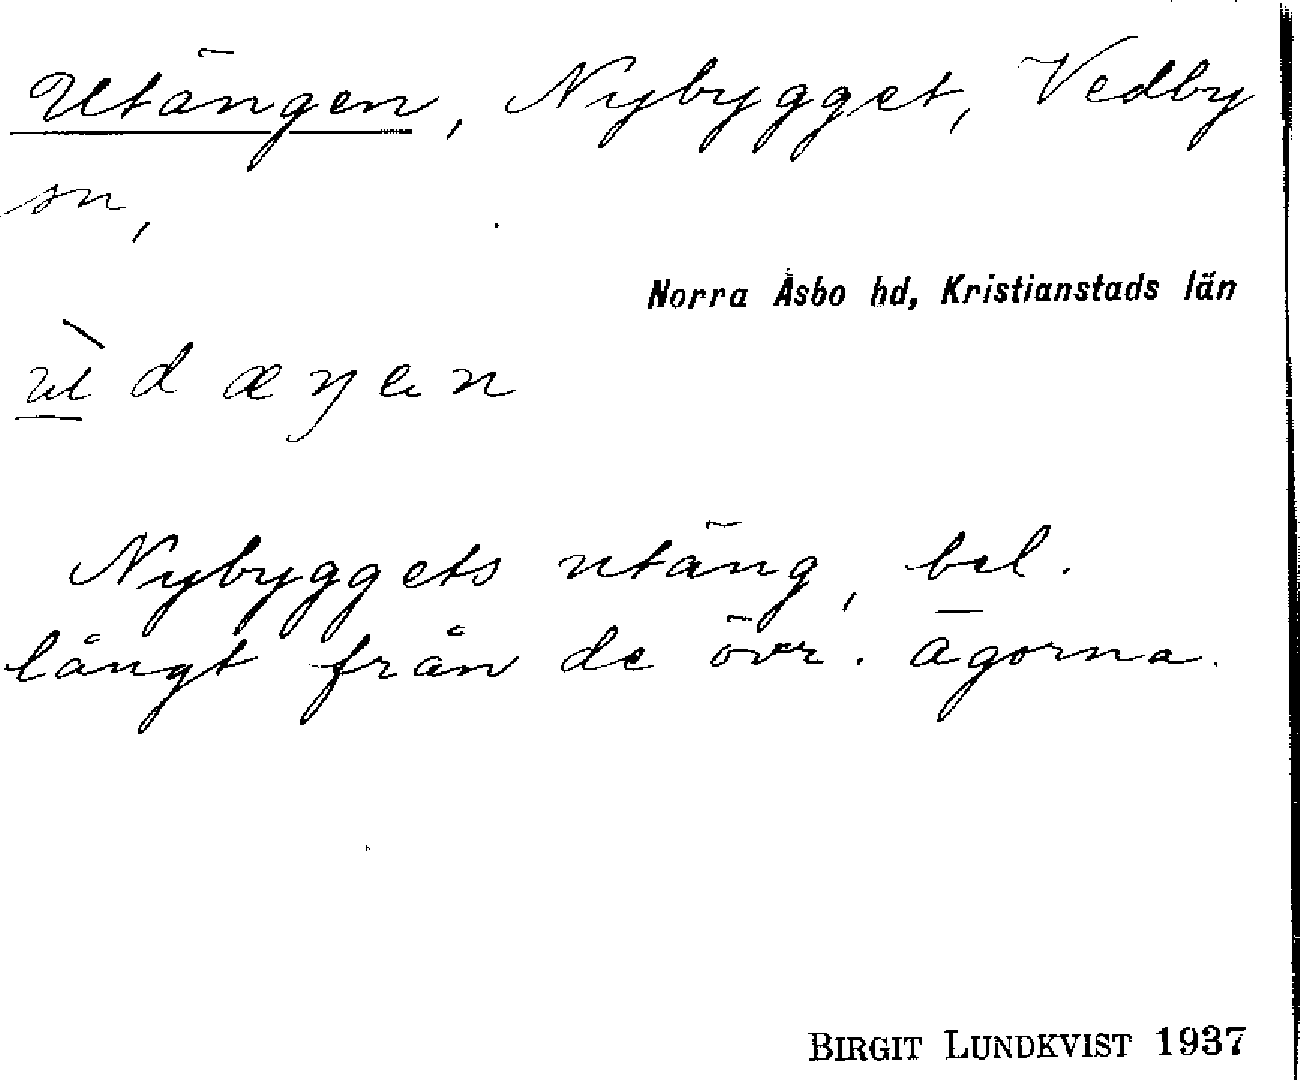 Utängen, Nybygget, Vedby
sn,
Norra Åsbo hd, Kristianstads län
Nybyggets utäng, bel.
långt från de övr. ägorna.
BIRGIT LUNDKVIST 1937